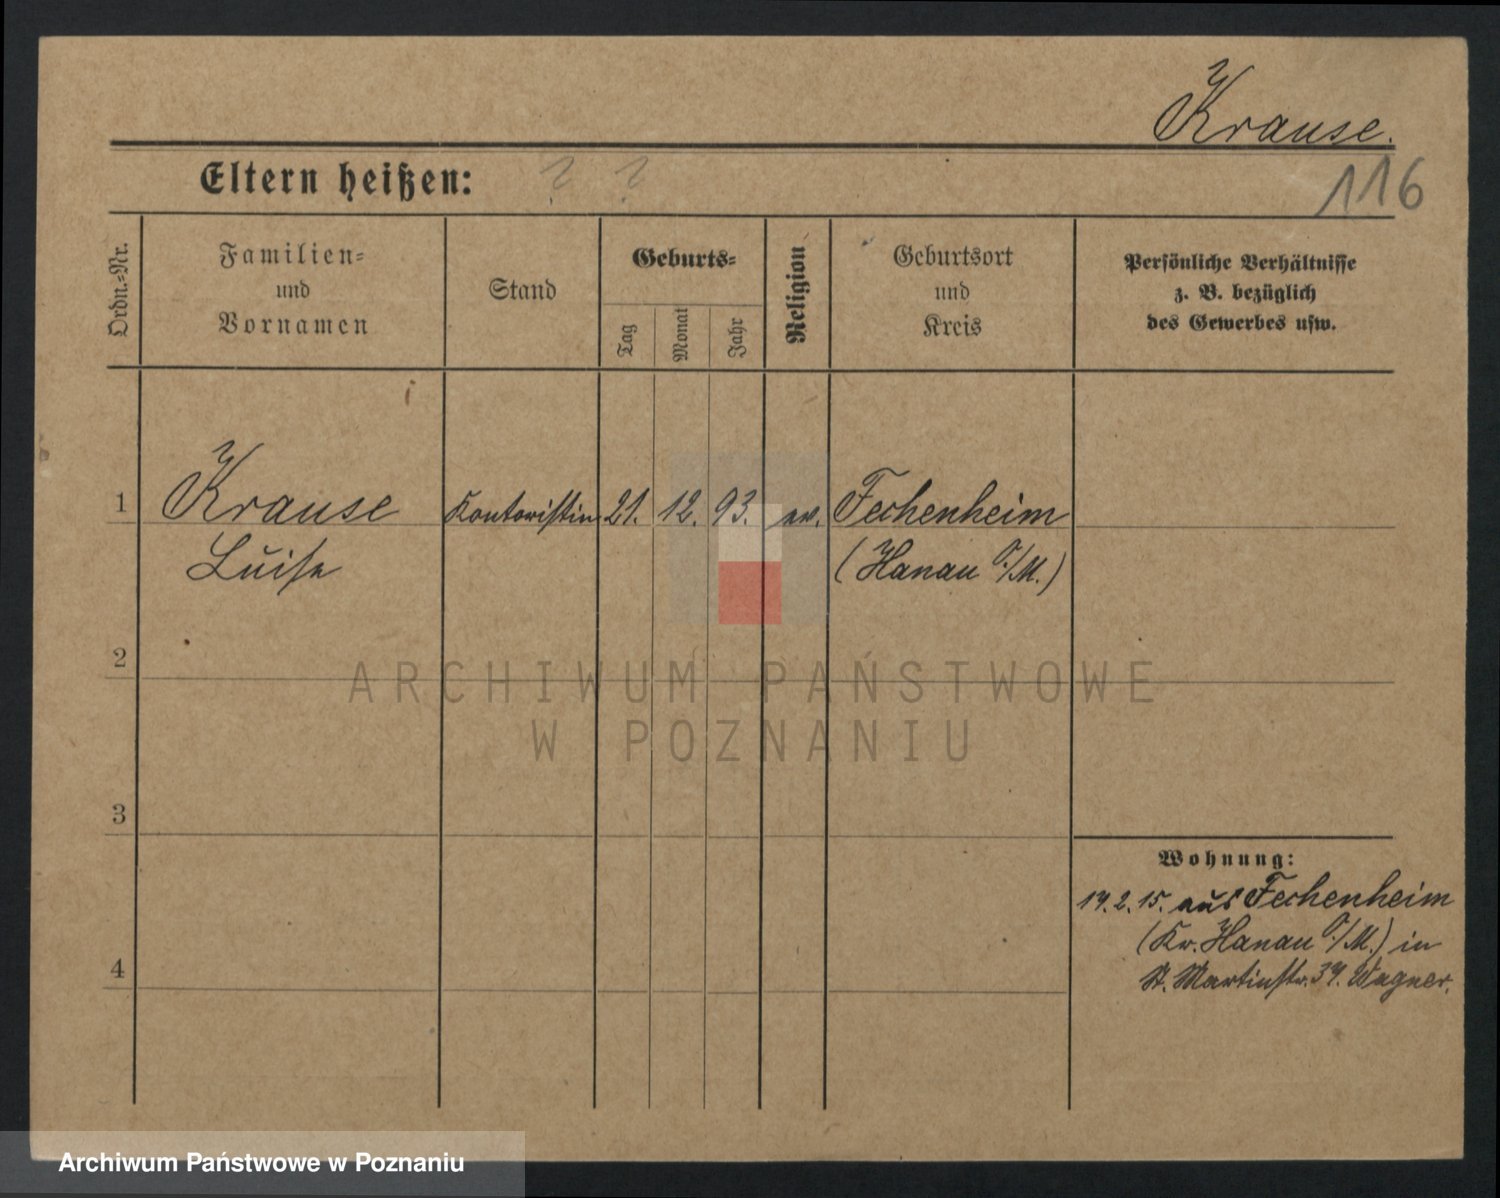 Krause.
Eltern heißen: ? ?
116
Ordn.-Nr.
Familien-
und
Vornamen
Stand
Geburts-
Tag
Monat
Jahr
Religion
Geburtsort
und
Kreis
Persönliche Verhältnisse
z. B. bezüglich
des Gewerbes usw.
1 Krause Kontoristin 21. 12. 93. ev. Fechenheim
Luise (Hanau a/M.)
2
ARCHIWUM PAŃSTWOWE
W POZNANIU
3
Wohnung:
14. 2. 15. aus Fechenheim
(Kr. Hanau a/M.) in
4
St. Martinstr. 34. Wagner.
Archiwum Państwowe w Poznaniu